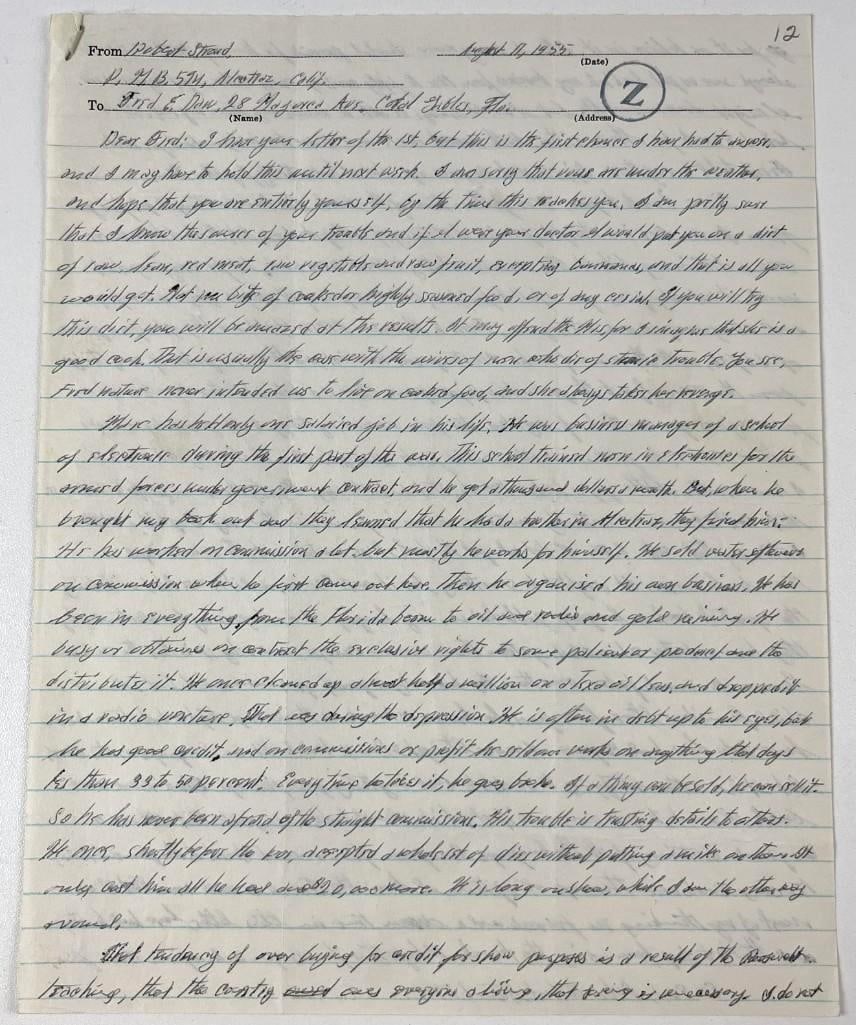 12
From Robert Stroud, August 17, 1955.
(Date)
P. M. B. 594, Alcatraz, Calif.
Z
To Fred E. Daw, 28 Majorca Ave, Coral Gables, Fla.
(Name) (Address)
Dear Fred: I have your letter of the 1st, but this is the first chance I have had to answer,
and I may have to hold this until next week. I am sorry that you are under the weather,
and hope that you are entirely yourself, by the time this reaches you. I am pretty sure
that I know the cause of your trouble and if I were your doctor I would put you on a diet
of raw, lean, red meat, raw vegetables and raw fruit, excepting bananas, and that is all you
would get. Not one bite of cooked or highly seasoned food, or of any cereal. If you will try
this diet, you will be amazed at the results. It may offend the Mrs, for I imagine that she is a
good cook. That is usually the case with the wives of men who die of stomach trouble. You see,
Fred nature never intended us to live on cooked food, and she always takes her revenge.
Marc has had only one salaried job in his life. He was business manager of a school
of electronics during the first part of the war. This school trained men in electronics for the
armed forces under government contract, and he got a thousand dollars a month. But, when he
brought my book out and they learned that he had a brother in Alcatraz, they fired him.
He has worked on commission a lot, but mostly he works for himself. He sold water softeners
on commission when he first came out here. Then he organized his own business. He has
been in everything, from the Florida boom to oil and radio and gold mining. He
buys or obtains on contract the exclusive rights to some patient or product and the
distributes it. He once cleaned up almost half a million on a Texas oil lease, and dropped it
in a radio venture. That was during the depression. He is often in debt up to his eyes, but
he has good credit, and on commissions or profit he seldom works on anything that pays
less than 33 to 50 percent. Every time he tries it, he goes broke. If a thing can be sold, he can sell it.
So he has never been afraid of the straight commissions. His trouble is trusting details to others.
He once, shortly before the war, accepted a whole set of dies without putting a mike on them. It
only cost him all he had and $20,000 more. He is long on show, while I am the other way
around.
That tendency of over buying for credit, for show purposes is a result of the Roosevelt
teaching, that the country owes everyone a living, that saving is unnecessary. I do not